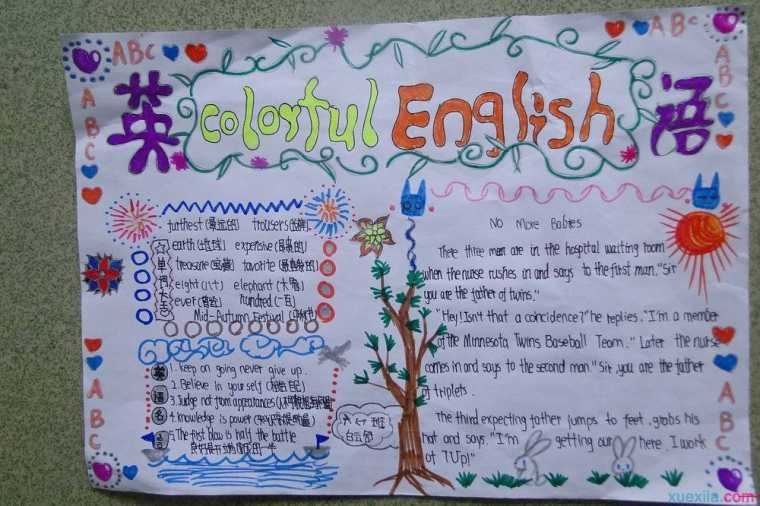 ABC
ABC
英 Colorful English 语
ABC
ABC
ABC
ABC
单词大舌
furthest(最远的) trousers
earth(地球) expensive(昂贵的)
treasure(宝藏) favorite
eight(八) elephant(大象)
ever(曾经) hundred(一百)
Mid-Autumn Festival(中秋节)
英语名言
1. keep on going never give up.
2. Believe in yourself(相信自己)
3. Judge not from appearances
4. Knowledge is power
5. The first blow is half the battle
良好开端
八(7)班
No More Babies
There three man are in the hospital waiting room
when the nurse rushes in and says to the first man."Sir
you are the father of twins."
"Hey! Isn't that a coincidence?"he replies."I'm a member
of the Minnesota Twins Baseball Team." Later the nurse
comes in and says to the second man" Sir you are the father
of triplets.
The third expecting father jumps to feet. grabs his
hat and says."I'm getting our here. I work
of 7 Up!"
xuexila.com